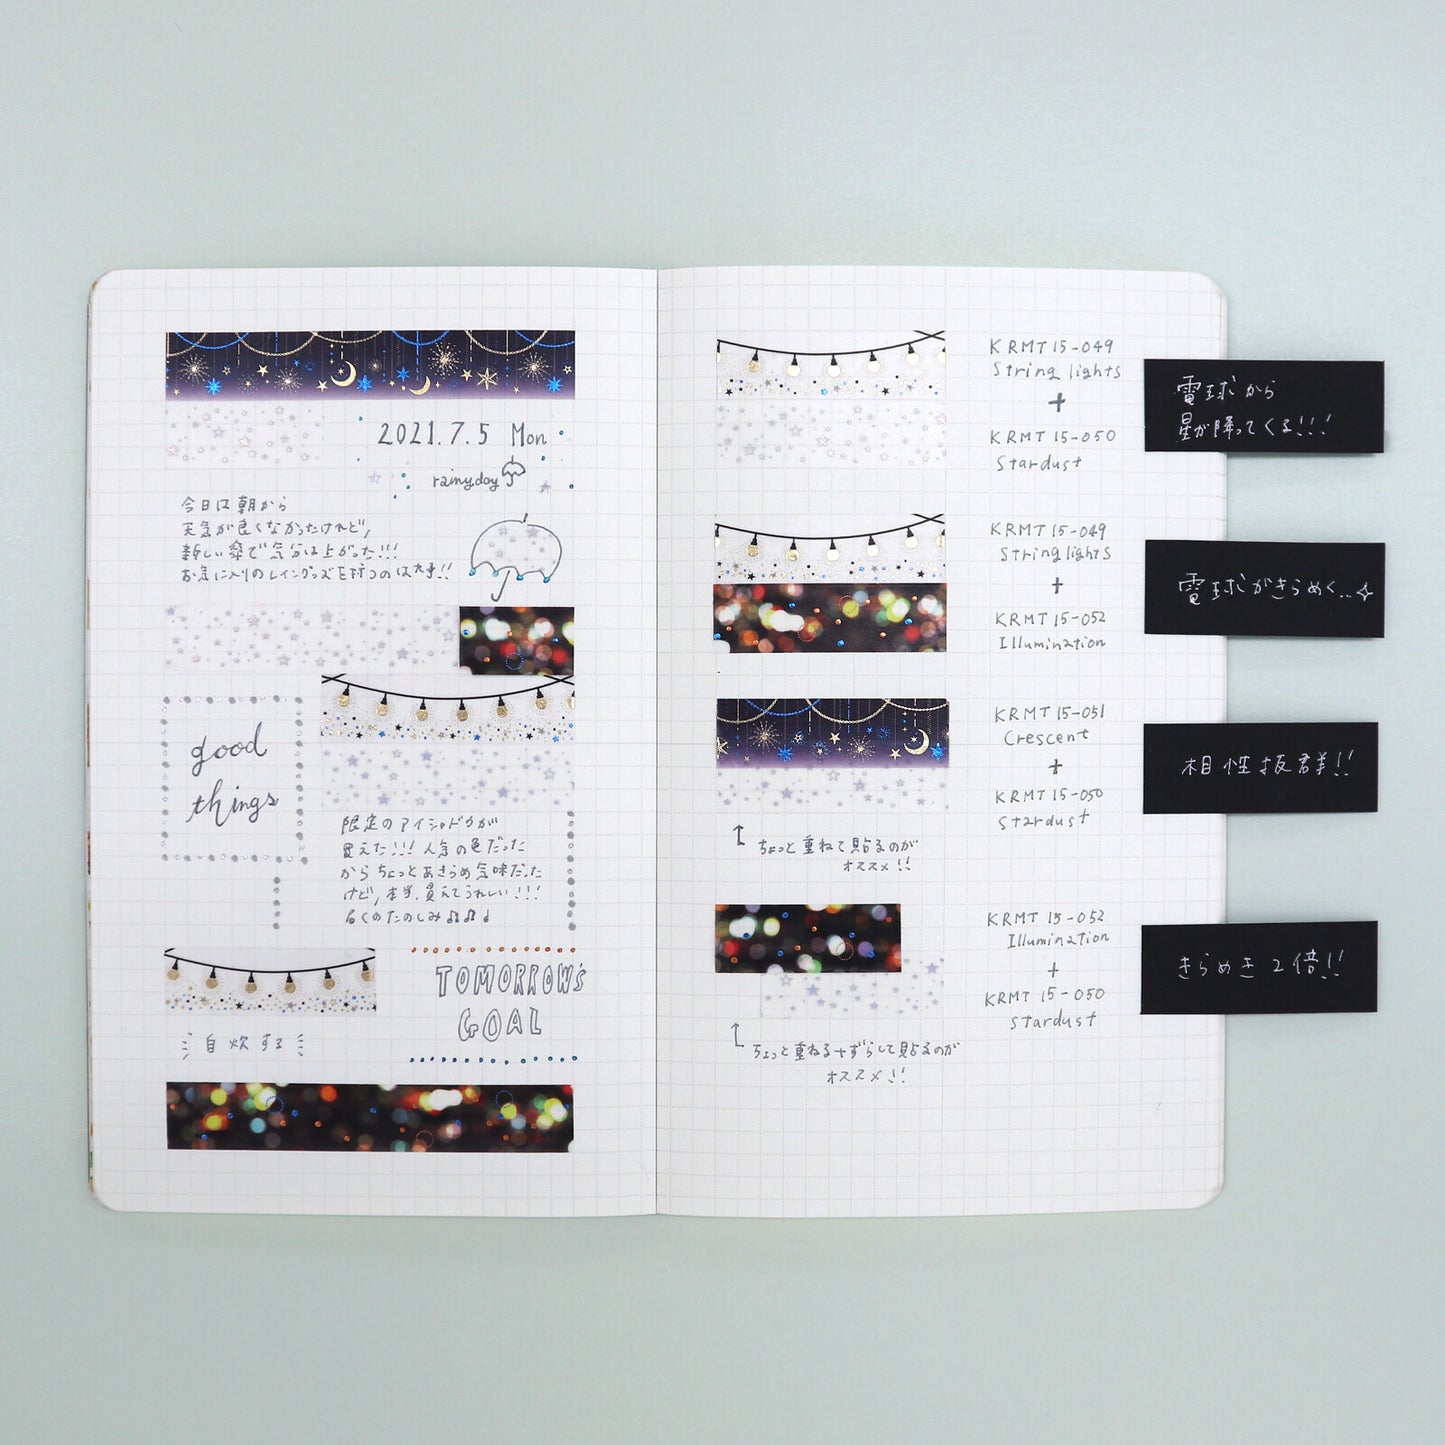 2021.7.5 Mon
rainyday
今日は朝から
天気が良くなかったけれど,
新しい傘で気分は上がった!!!
お気に入りのレイングッズを持つのは大事!!
good
things
限定のアイシャドウが
買えた!!! 人気の色だった
からちょっとあきらめ気味だった
けど, 本当、買えてうれしい!!!
届くのたのしみ♫♫♩
TOMORROW'S
GOAL
自炊する
KRMT 15-049
String lights
+
KRMT 15-050
Stardust
電球から
星が降ってくる!!!
KRMT 15-049
String lights
+
KRMT 15-052
Illumination
電球がきらめく..✧
KRMT 15-051
Crescent
+
KRMT 15-050
Stardust
相性抜群!!
ちょっと重ねて貼るのが
オススメ!!
KRMT 15-052
Illumination
+
KRMT 15-050
Stardust
きらめき2倍!!
ちょっと重ねる+ずらして貼るのが
オススメ!!